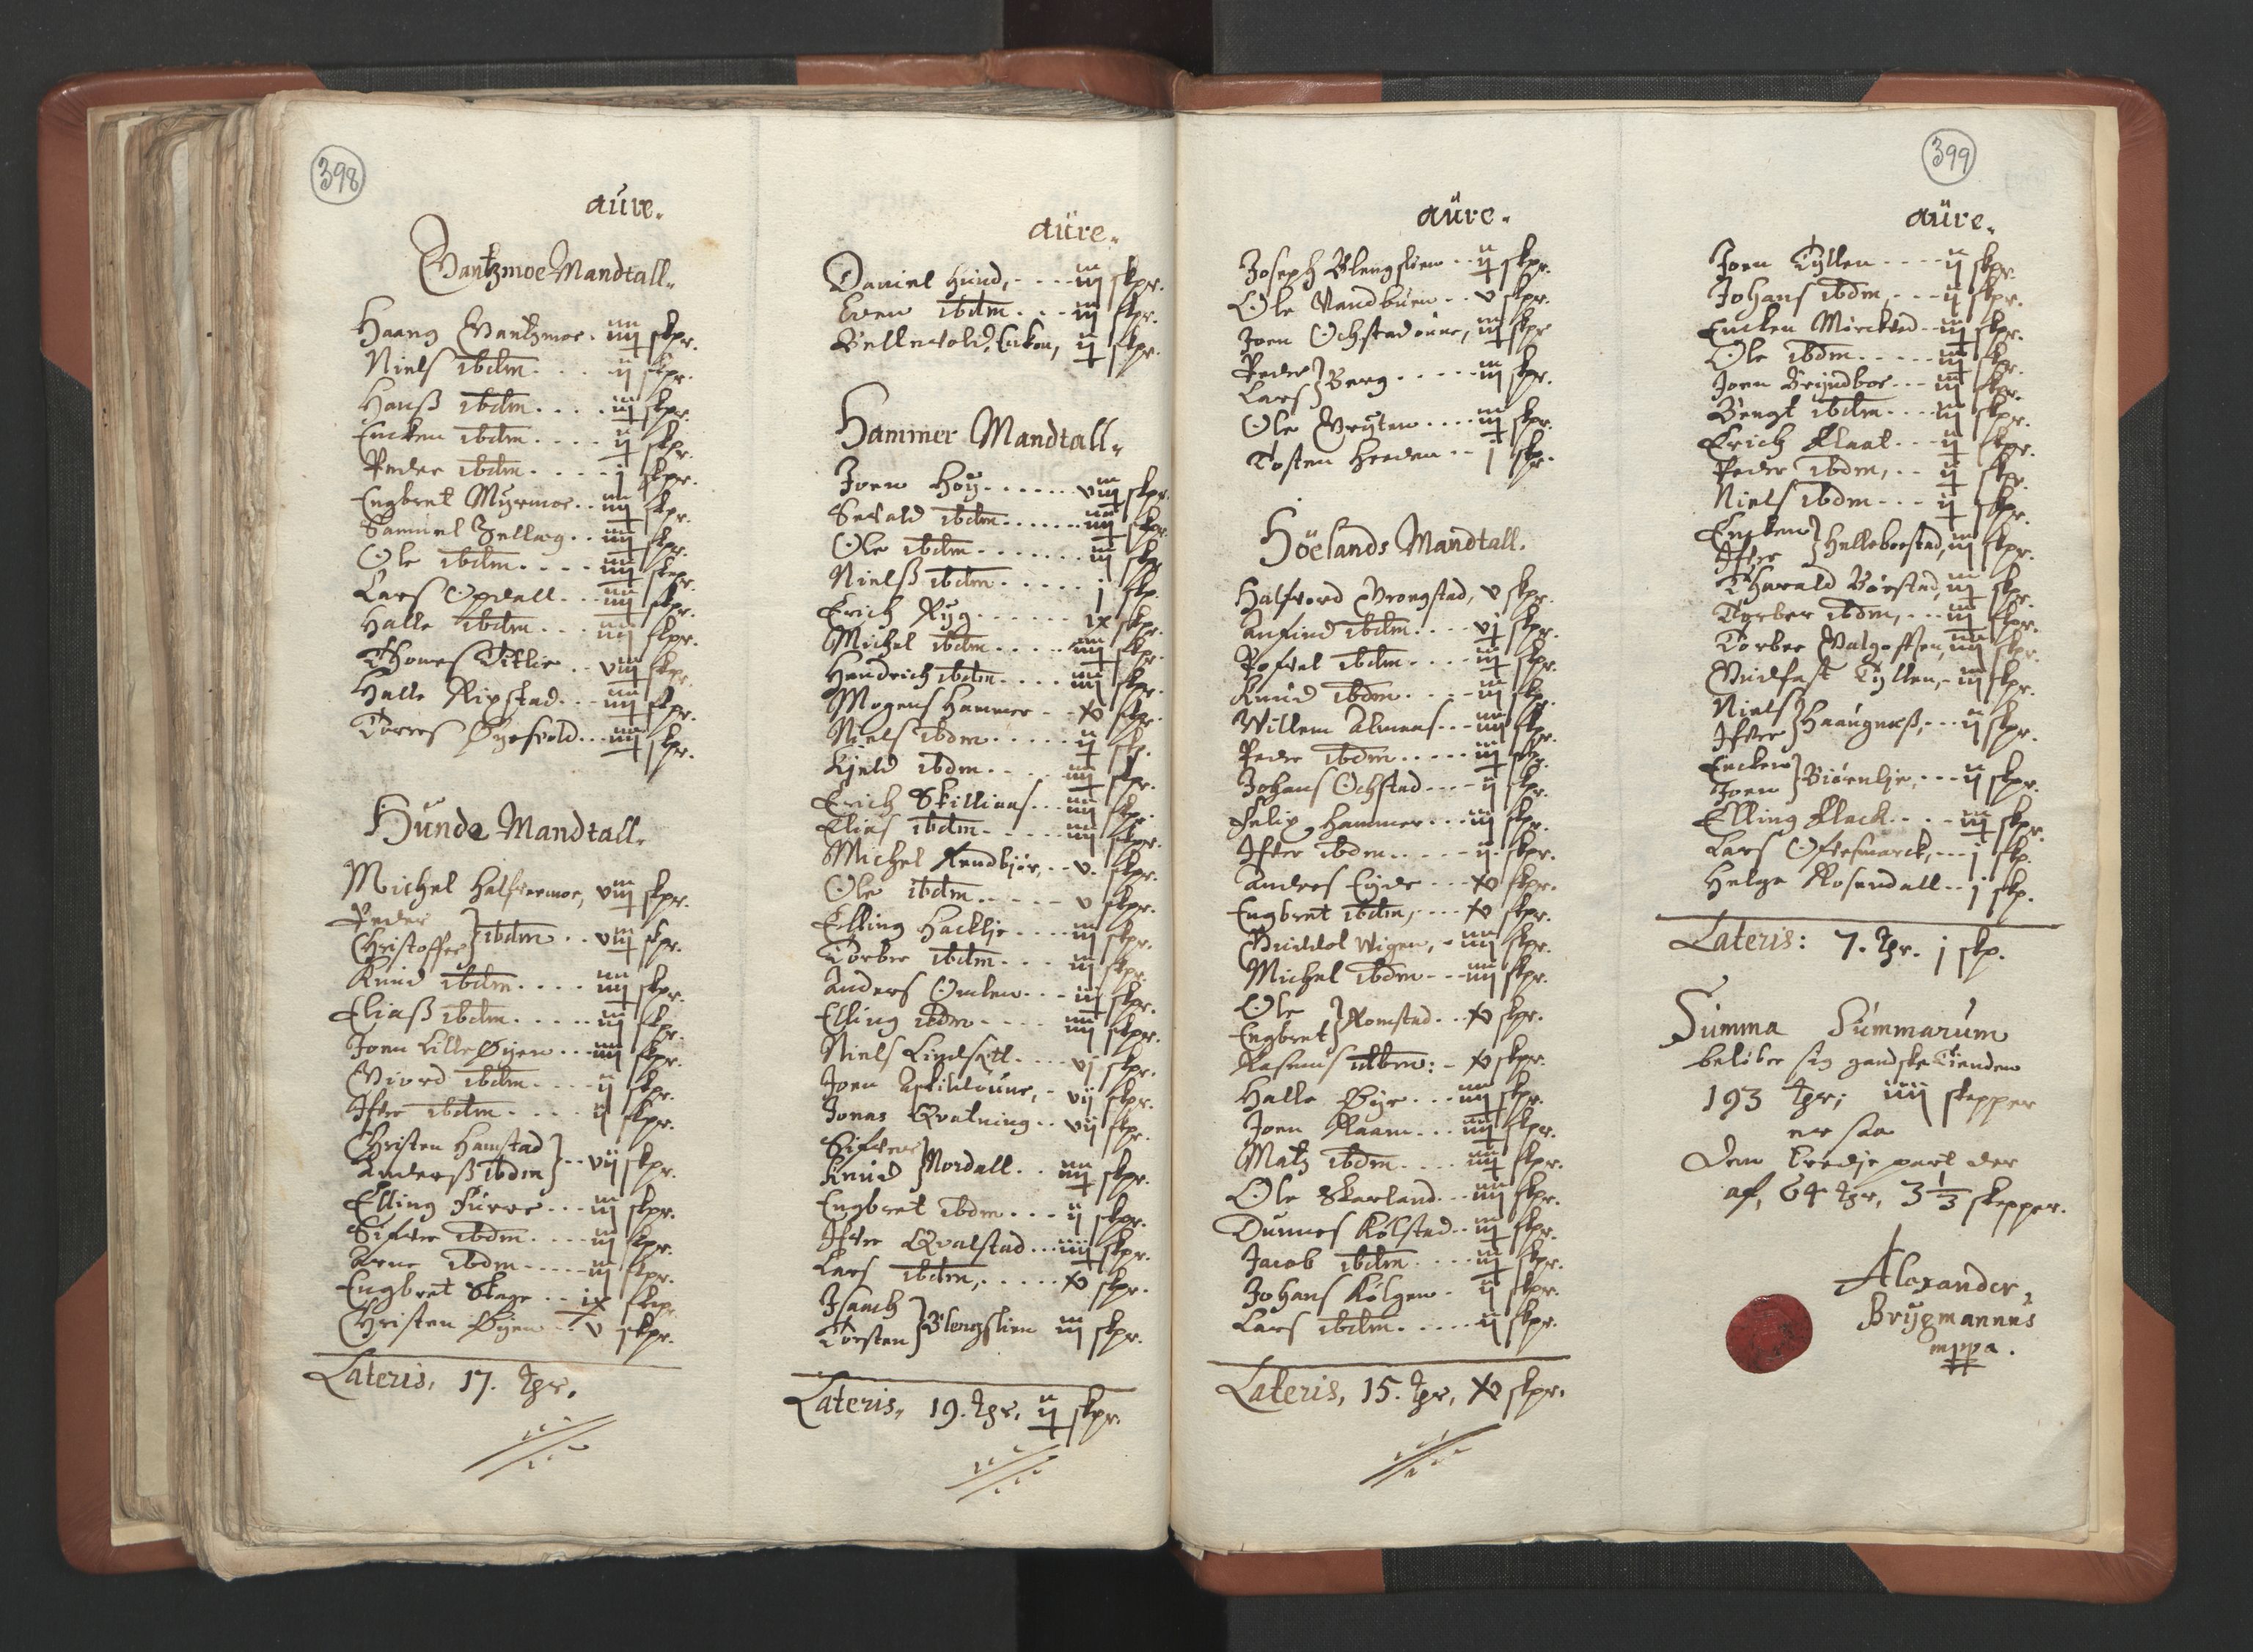 398
aure.
Vantzmoe Mandtall.
Haang Vantzmoe. iiij skpr.
Niels ibdm.... ij skpr.
Hanß ibdm.... iij skpr.
Encken ibdm.... ij skpr.
Peder ibdm.... j skpr.
Engbret Myrmoe.. iiij skpr.
Samuel Zellæg.. iiij skpr.
Ole ibdm.... iiij skpr.
Lars Opdall... iiij skpr.
Halle ibdm... iiij skpr.
Thomes Titlie.. viij skpr.
Halle Ripstad... iiij skpr.
Torres Øyesvold... iiij skpr.
Hunde Mandtall.
Michel Halfvermoe, viij skpr.
Peder
Christoffer } ibdm.. viij skpr.
Knud ibdm.... iiij skpr.
Eliaß ibdm..... iij skpr.
Joen Lille Øyen... iiij skpr.
Niord ibdm.... ij skpr.
Ifver ibdm.... ij skpr.
Christen Hamstad
Anderß ibdm } -- vij skpr.
Elling Furre... iij skpr.
Sifver ibdm.... iij skpr.
Arne ibdm..... iij skpr.
Engbret Skage.. ix skepr.
Christen Øyen.. v skpr.
Lateris, 17. Tpr.
aure.
Daniel Hund,.... iij skpr.
Even ibdm... iij skpr.
Bellesvold, Enken, ij skpr.
Hammer Mandtall.
Joen Høy...... viij skpr.
Sevald ibdm....... iiij skpr.
Ole ibdm....... iij skp.
Nielß ibdm..... j skp.
Erich Ryg...... ix skpr.
Michel ibdm..... iiij skpr.
Hendrich ibdm.... iiij skpr.
Mogens Hammer - - xv skpr.
Niels ibdm..... ij skp.
Kield ibdm..... iiij skpr.
Erich Skilliaas... iiij skpr.
Elias ibdm...... iiij skpr.
Michel Rendbiør,.. v. skpr.
Ole ibdm..... v skpr.
Elling Hacklie.... iij skpr.
Torber ibdm... iij skpr.
Anders Omlen... iij skpr.
Elling ibdm.... iiij skpr.
Niels Lindsetl.... vj skpr.
Joen Eskildoune,.. vij skpr.
Jonas Qvatning.. vij skpr.
Sifver
Knud } Nordall.. iiij skpr.
Engbret ibdm... ij skpr.
Ifver Qvalstad... iiij skpr.
Lars ibdm,..... xv skpr.
Isaach
Torsten } Blengslien iij skpr.
Lateris, 19. Tpr, ij skpr.
aure.
Joseph Blengslien.. ij skpr.
Ole Vandbuen.. v skpr.
Joen Ochstadoune, iij skpr
Peder
Lars } Berg..... iij skpr.
Ole Bryten.... iij skpr.
Tosten Heeden.. j skp.
Höelands Mandtall.
Halfvord Vrongstad, v skpr.
Anfind ibdm.... vj skpr.
Pofvel ibdm.... iij skpr.
Knud ibdm.... iij skp.
Willem Almaas... iiij skp.
Peder ibdm..... iij skp.
Johans Ochstad... ij skp.
Felix Hammer... iij skpr.
Ifver ibdm.... ij. skpr.
Anders Eyde... xv skpr.
Engbret ibdm,.... xv skpr.
Gulldol Wigen, - iiij skpr.
Michel ibdm... iiij skpr.
Ole
Engbret } Romstad.. xv skpr.
Rasmus ibdm: - xv skpr.
Halle Øye... iiij skpr.
Joen Raam... iiij skpr.
Matz ibdm.... iiij skpr.
Ole Skarland... iiij skpr.
Dunnes Kølstad.. iij skpr.
Jacob ibdm.... iij skpr.
Johans Kølgen. ij skpr.
Lars ibdm..... ij skpr.
Lateris, 15. Tpr, xv skpr.
399
aure.
Joen Tyllen.... ij skpr.
Johans ibdm,... ij skpr.
Encken Mørckved.. iij skpr.
Ole ibdm..... iij skp.
Joen Bryndboe... iij skpr.
Bengt ibdm.... iij skpr.
Erich Flaat... ij skpr.
Peder ibdm,.. ij skp.
Niels ibdm... ij skpr.
Encken
Ifver } Hellebostad, iij skpr.
Tharald Børstad, iij skpr.
Torber ibdm,... iij skpr.
Torber Valgofsen, iiij skpr.
Gudfast Tyllen, - iij skpr.
Niels
Ifver } Haaugneß,... ij skpr.
Encken
Joen } Biørnlie,... ij skpr.
Elling Flack.... iij skpr.
Lars Ofvesmarck,... j skp.
Helge Rosendall.. j skp.
Lateris: 7. Tpr. j skp.
Summa Summarum
beløber sig gandske Tienden
193 Tpr; iiij skepper
er saa
Den tredje part der
af, 64 Tpr, 3 1/3 skepper.
Alexander
Brygmannus
mppa.